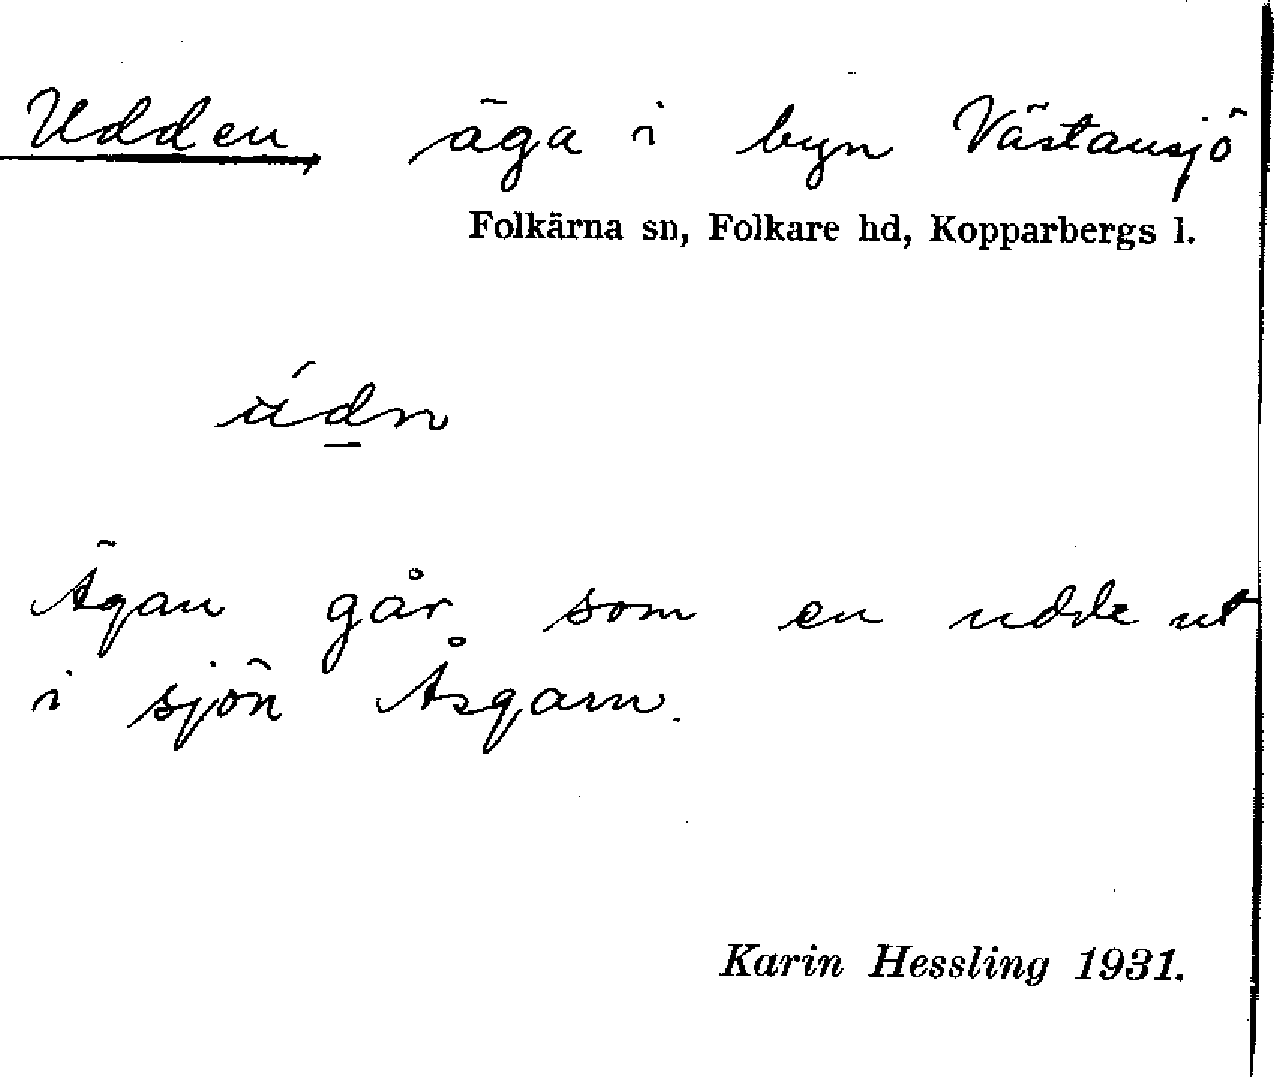 Udden, äga i byn Västansjö
Folkärna sn, Folkare hd, Kopparbergs l.
údn
Ägan går som en udde ut
i sjön Åsgarn.
Karin Hessling 1931.